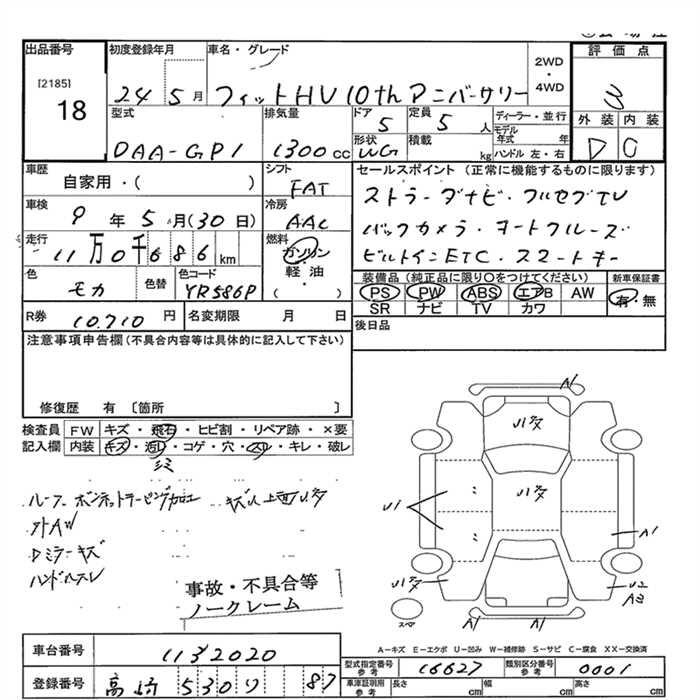 出品番号
[2185]
18
初度登録年月
24 5月
車名・グレード
フィットHV 10th アニバーサリー
2WD
・
4WD
評価点
3
外装 内装
D C
型式
DAA-GP1
排気量
1300cc
ドア
5
定員
5人
形状
WG
積載
kg
ディーラー・並行
モデル年式 年
ハンドル 左・右
車歴
自家用・( )
シフト
FAT
車検
9年5月(30日)
冷房
AAC
走行
11万0千686km
燃料
ガソリン
軽油
・
( )
色
モカ
色替
色コード
YR586P
R券
10.710円
名変期限 月 日
セールスポイント (正常に機能するものに限ります)
ストラーダナビ・フルセグTV
バックカメラ・オートクルーズ
ビルトインETC・スマートキー
装備品(純正品に限り○をつけてください)
PS PW ABS エアB AW
SR ナビ TV カワ
新車保証書
有・無
後日品
注意事項申告欄(不具合内容等は具体的に記入して下さい)
修復歴 有〔箇所 〕
検査員 FW キズ・飛石・ヒビ割・リペア跡・×要
記入欄 内装 キズ・汚レ・コゲ・穴・スレ・キレ・破レ
シミ
ルーフ ボンネットラッピング加工 キズ
外AW
Dミラーキズ
ハンドルスレ
事故・不具合等
ノークレーム
A1
U1
U1
A1
U2
A3
スペア
A1 A1
A−キズ E−エクボ U−凹み W−補修跡 S−サビ C−腐食 XX−交換済
車台番号
1132020
登録番号
高崎 530 ワ 87
型式指定番号
参考
16627
類別区分番号
参考
0001
車庫証明用
参考
長さ cm 幅 cm 高さ cm